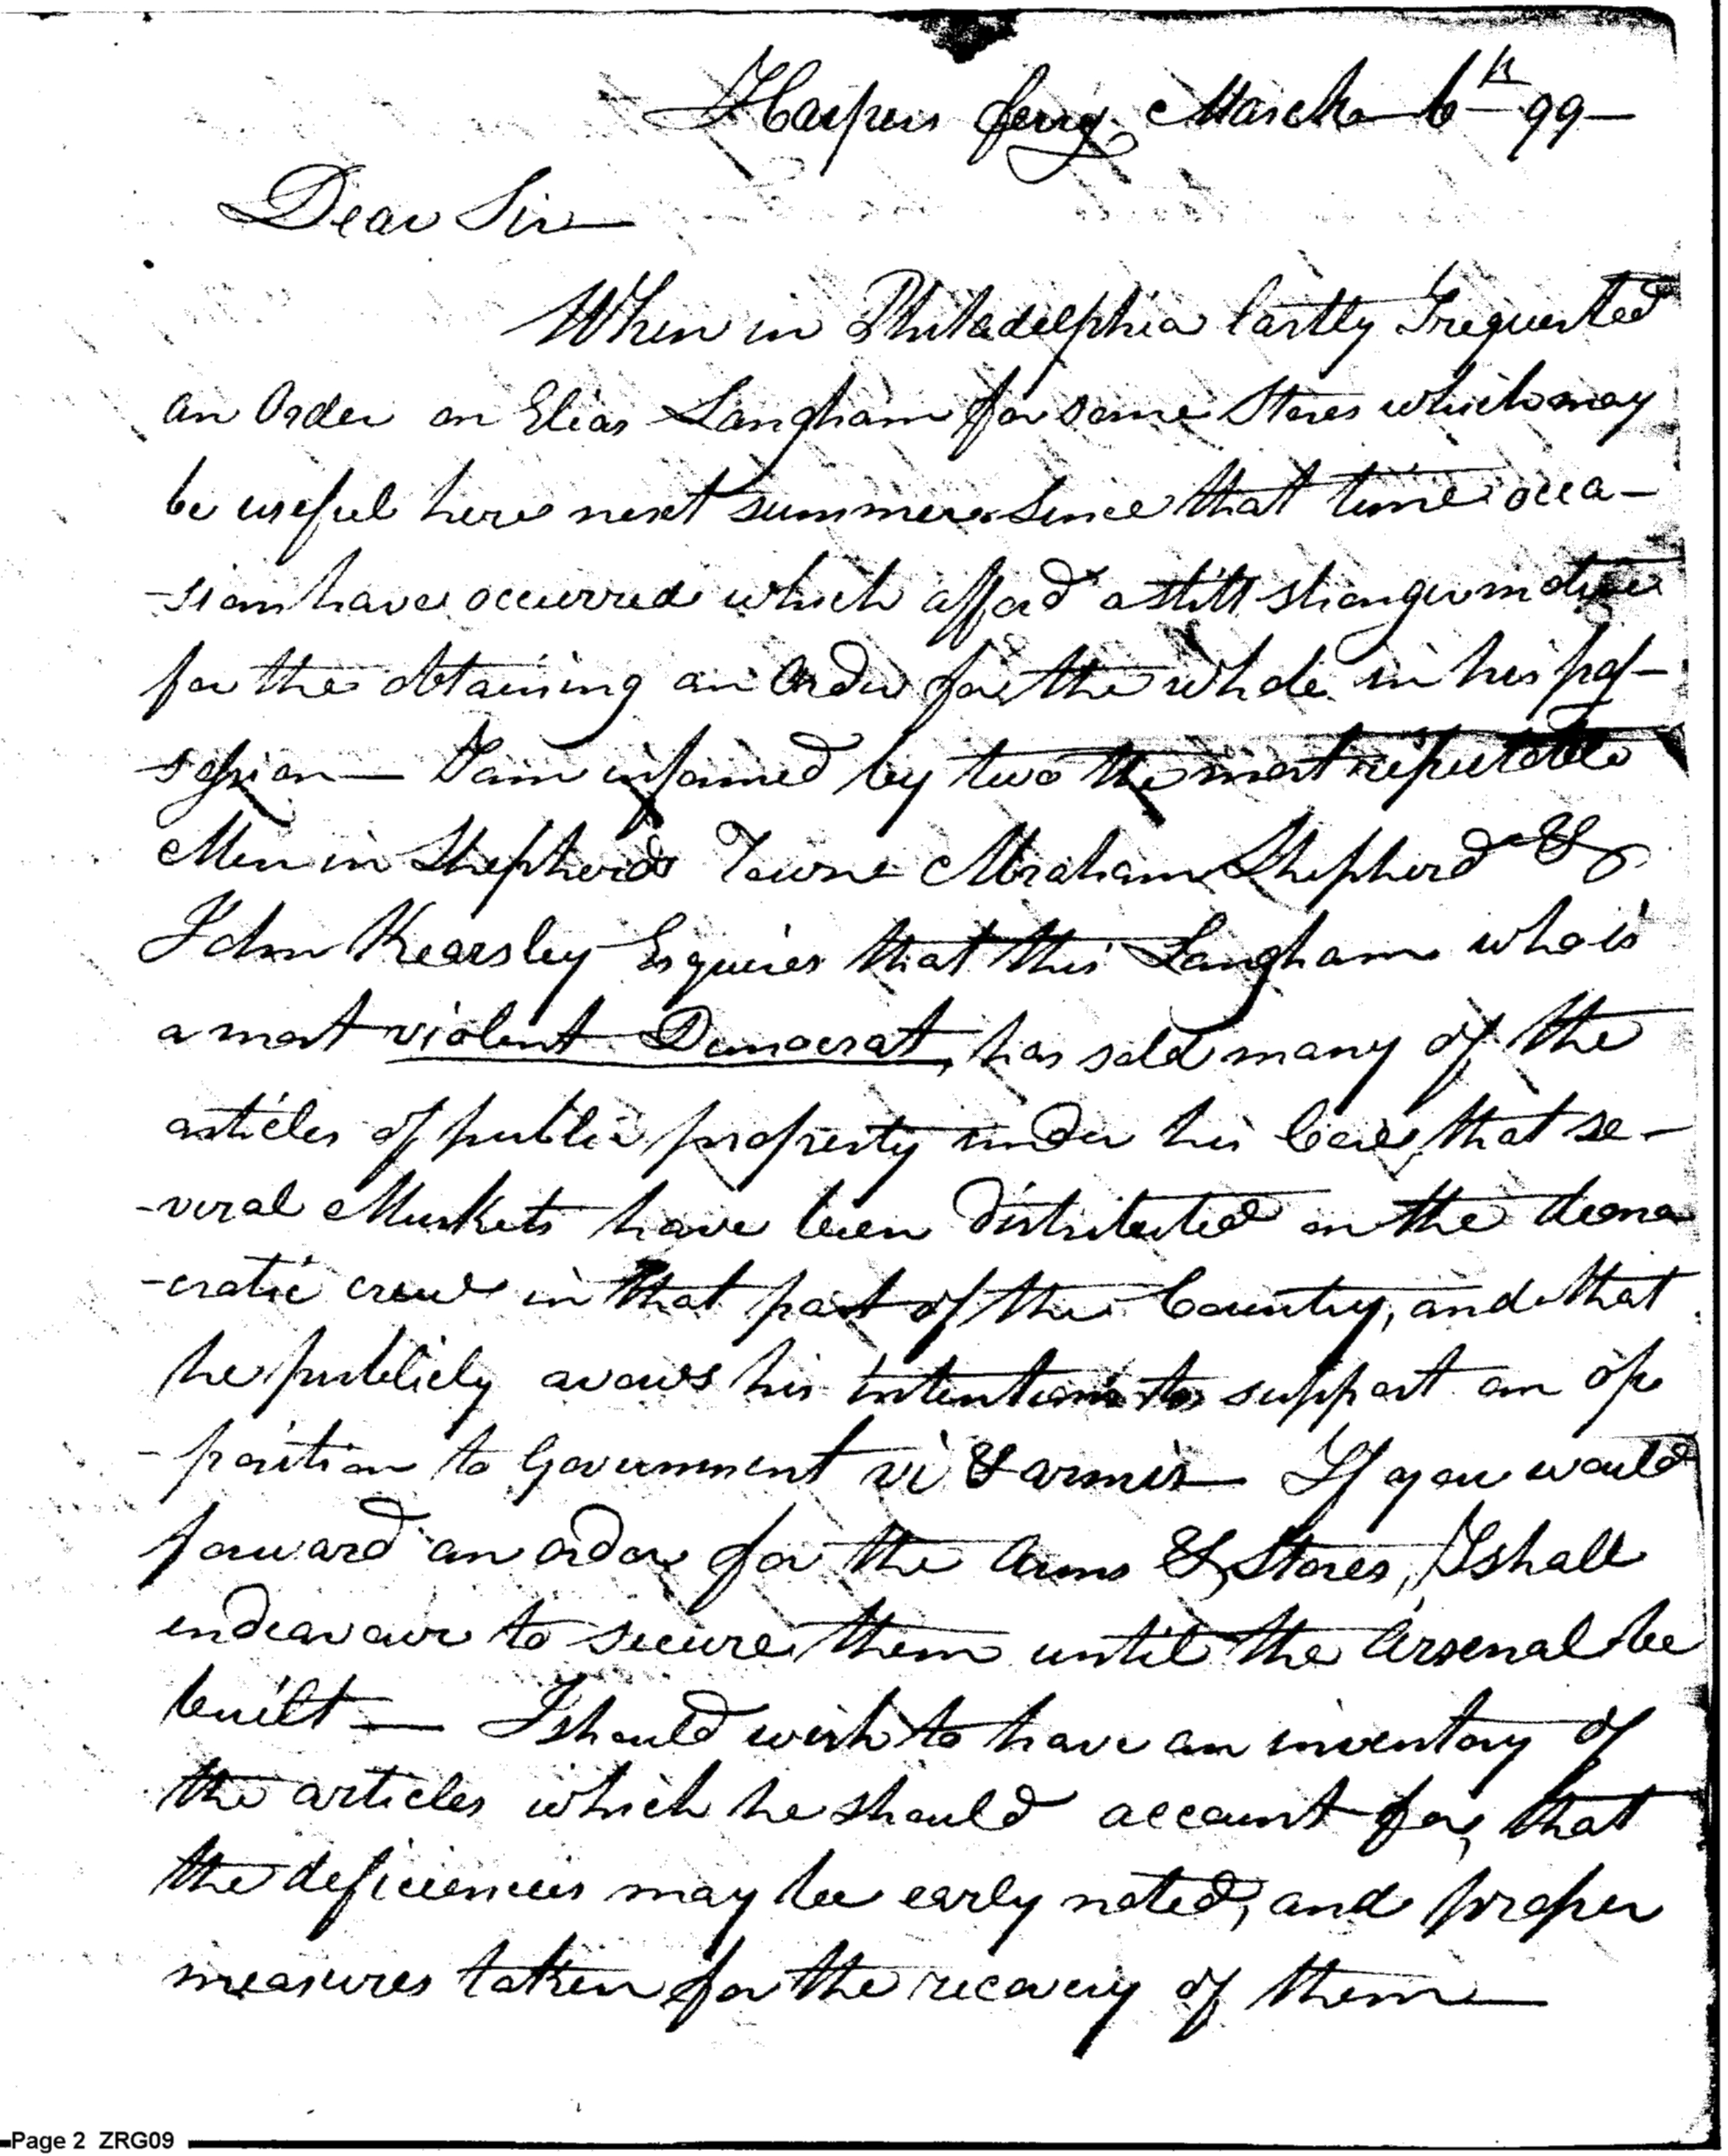 Harpers ferry March 6th 99
Dear Sir
When in Philadelphia lastly I requested
an Order on Elias Langham for some Stores which may
be useful here next summer. Since that time occa-
-sion have occurred which afford a still stronger motive
for the obtaining an Order for the whole in his pos-
-session — I am informed by two the most reputable
Men in Shepherds Towne Abraham Shepherd &
John Kearsley Esquires that this Langham who is
a most violent Democrat, has sold many of the
articles of public property under his Care, that se-
-veral Muskets have been distributed on the demo
-cratic crew in that part of the Country, and that
he publicly avows his intentions to support an op
-position to Government vi & armis — If you would
forward an order for the Arms & Stores, I shall
endeavour to secure them until the Arsenal be
built — I should wish to have an inventory of
the articles which he should account for, that
the deficiencies may be early noted, and proper
measures taken for the recovery of them —
Page 2 ZRG09